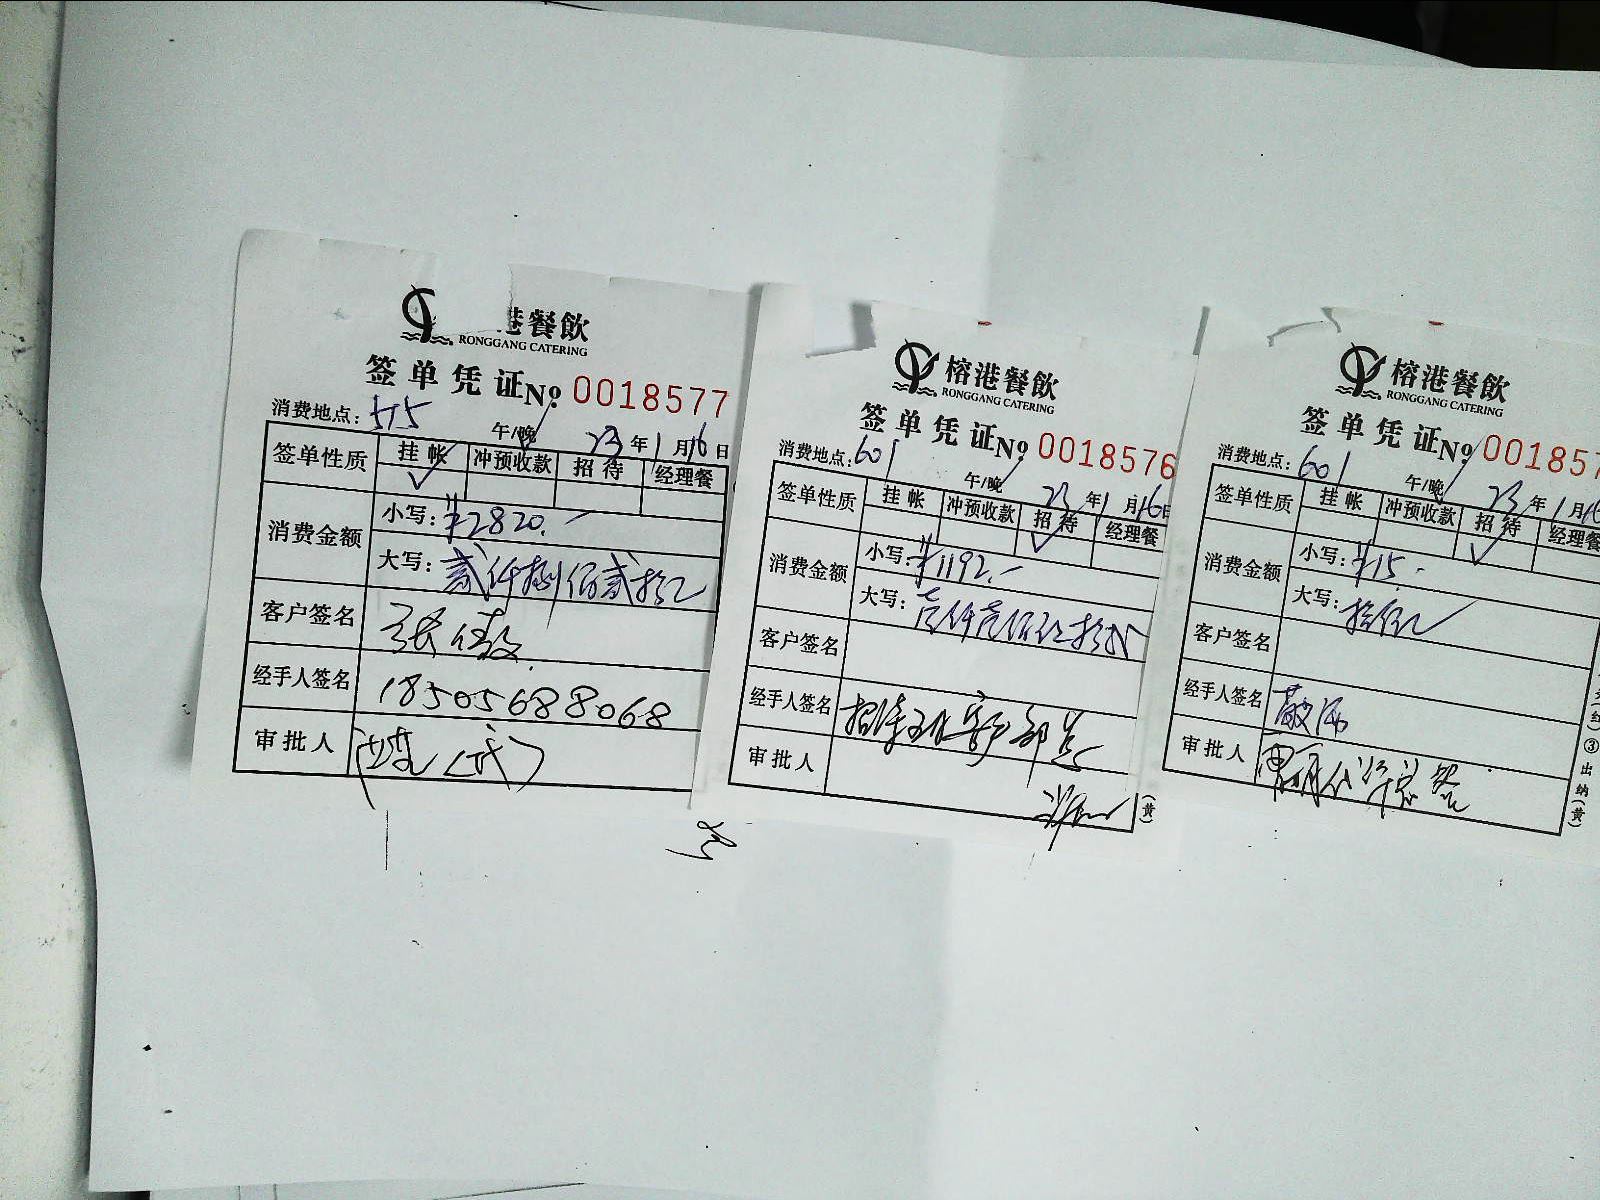 港餐飲
RONGGANG CATERING
签单凭证 No 0018577
消费地点: 575 午/晚 23年1月16日
签单性质 挂帐 ✓ 冲预收款 招待 经理餐
消费金额 小写: ¥2820.-
大写: 贰仟捌佰贰拾元
客户签名 张
经手人签名 18505688068
审批人
榕港餐飲
RONGGANG CATERING
签单凭证 No 0018576
消费地点: 601 午/晚 23年1月16日
签单性质 挂帐 冲预收款 招待 ✓ 经理餐
消费金额 小写: ¥1192.-
大写: 壹仟壹佰玖拾贰
客户签名
经手人签名 招待 客户部
审批人
(黄)
榕港餐飲
RONGGANG CATERING
签单凭证 No 001857
消费地点: 601 午/晚 23年1月16
签单性质 挂帐 冲预收款 招待 ✓ 经理餐
消费金额 小写: ¥15.-
大写: 拾伍元
客户签名
经手人签名
审批人
(红) ③出纳(黄)